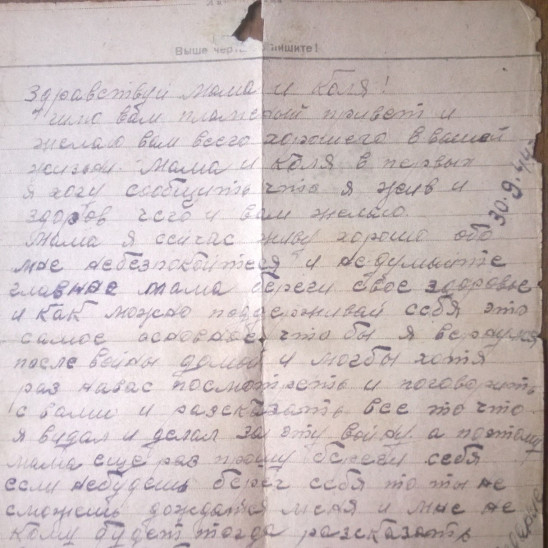 Выше чер пишите!
Здравствуй мама и Коля!
шлю вам пламеный привет и
желаю вам всего хорошего в вашей
жизьни. Мама и Коля в первых
я хочу сообщить что я жив и
здоров чего и вам желаю.
30.9.44
Мама я сейчас живу хорошо обо
мне небезпокойтеся и недумыйте
главное мама береги свое здоровье
и как можно поддерживай себя это
самое основное что бы я вернулся
после войны домой и могбы хотя
раз навас посмотреть и поговорить
с вами и разсказать все то что
я видал и делал за эту войну. а поэтому
мама еще раз прошу береги себя
если небудешь береч себя то ты не
сможешь дождатся меня и мне не
кому будет тогда разсказать